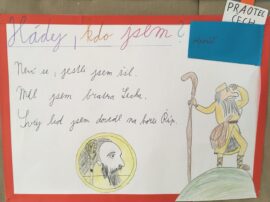 PRAOTEC
ČECH
Hádej, kdo jsem?
Neví se, jestli jsem žil.
Měl jsem bratra Lecha.
Svůj lid jsem dovedl na horu Říp.